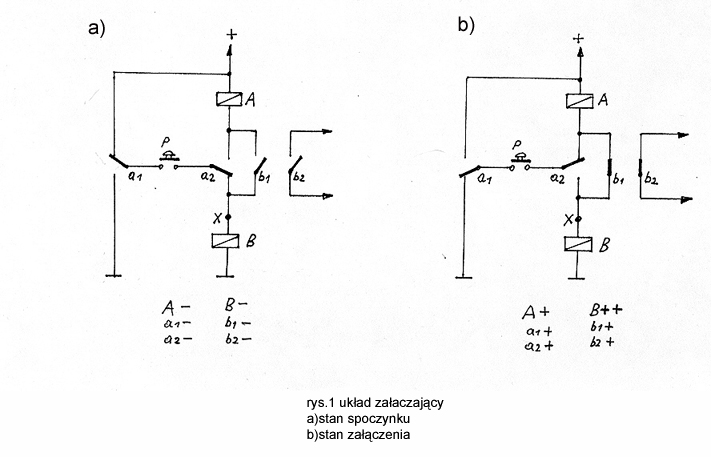 a)
b)
+
+
A
A
P
P
a1
a2
b1
b2
a1
a2
b1
b2
X
X
B
B
A − B −
a1 − b1 −
a2 − b2 −
A + B++
a1 + b1 +
a2 + b2 +
rys.1 układ załaczający
a)stan spoczynku
b)stan załączenia